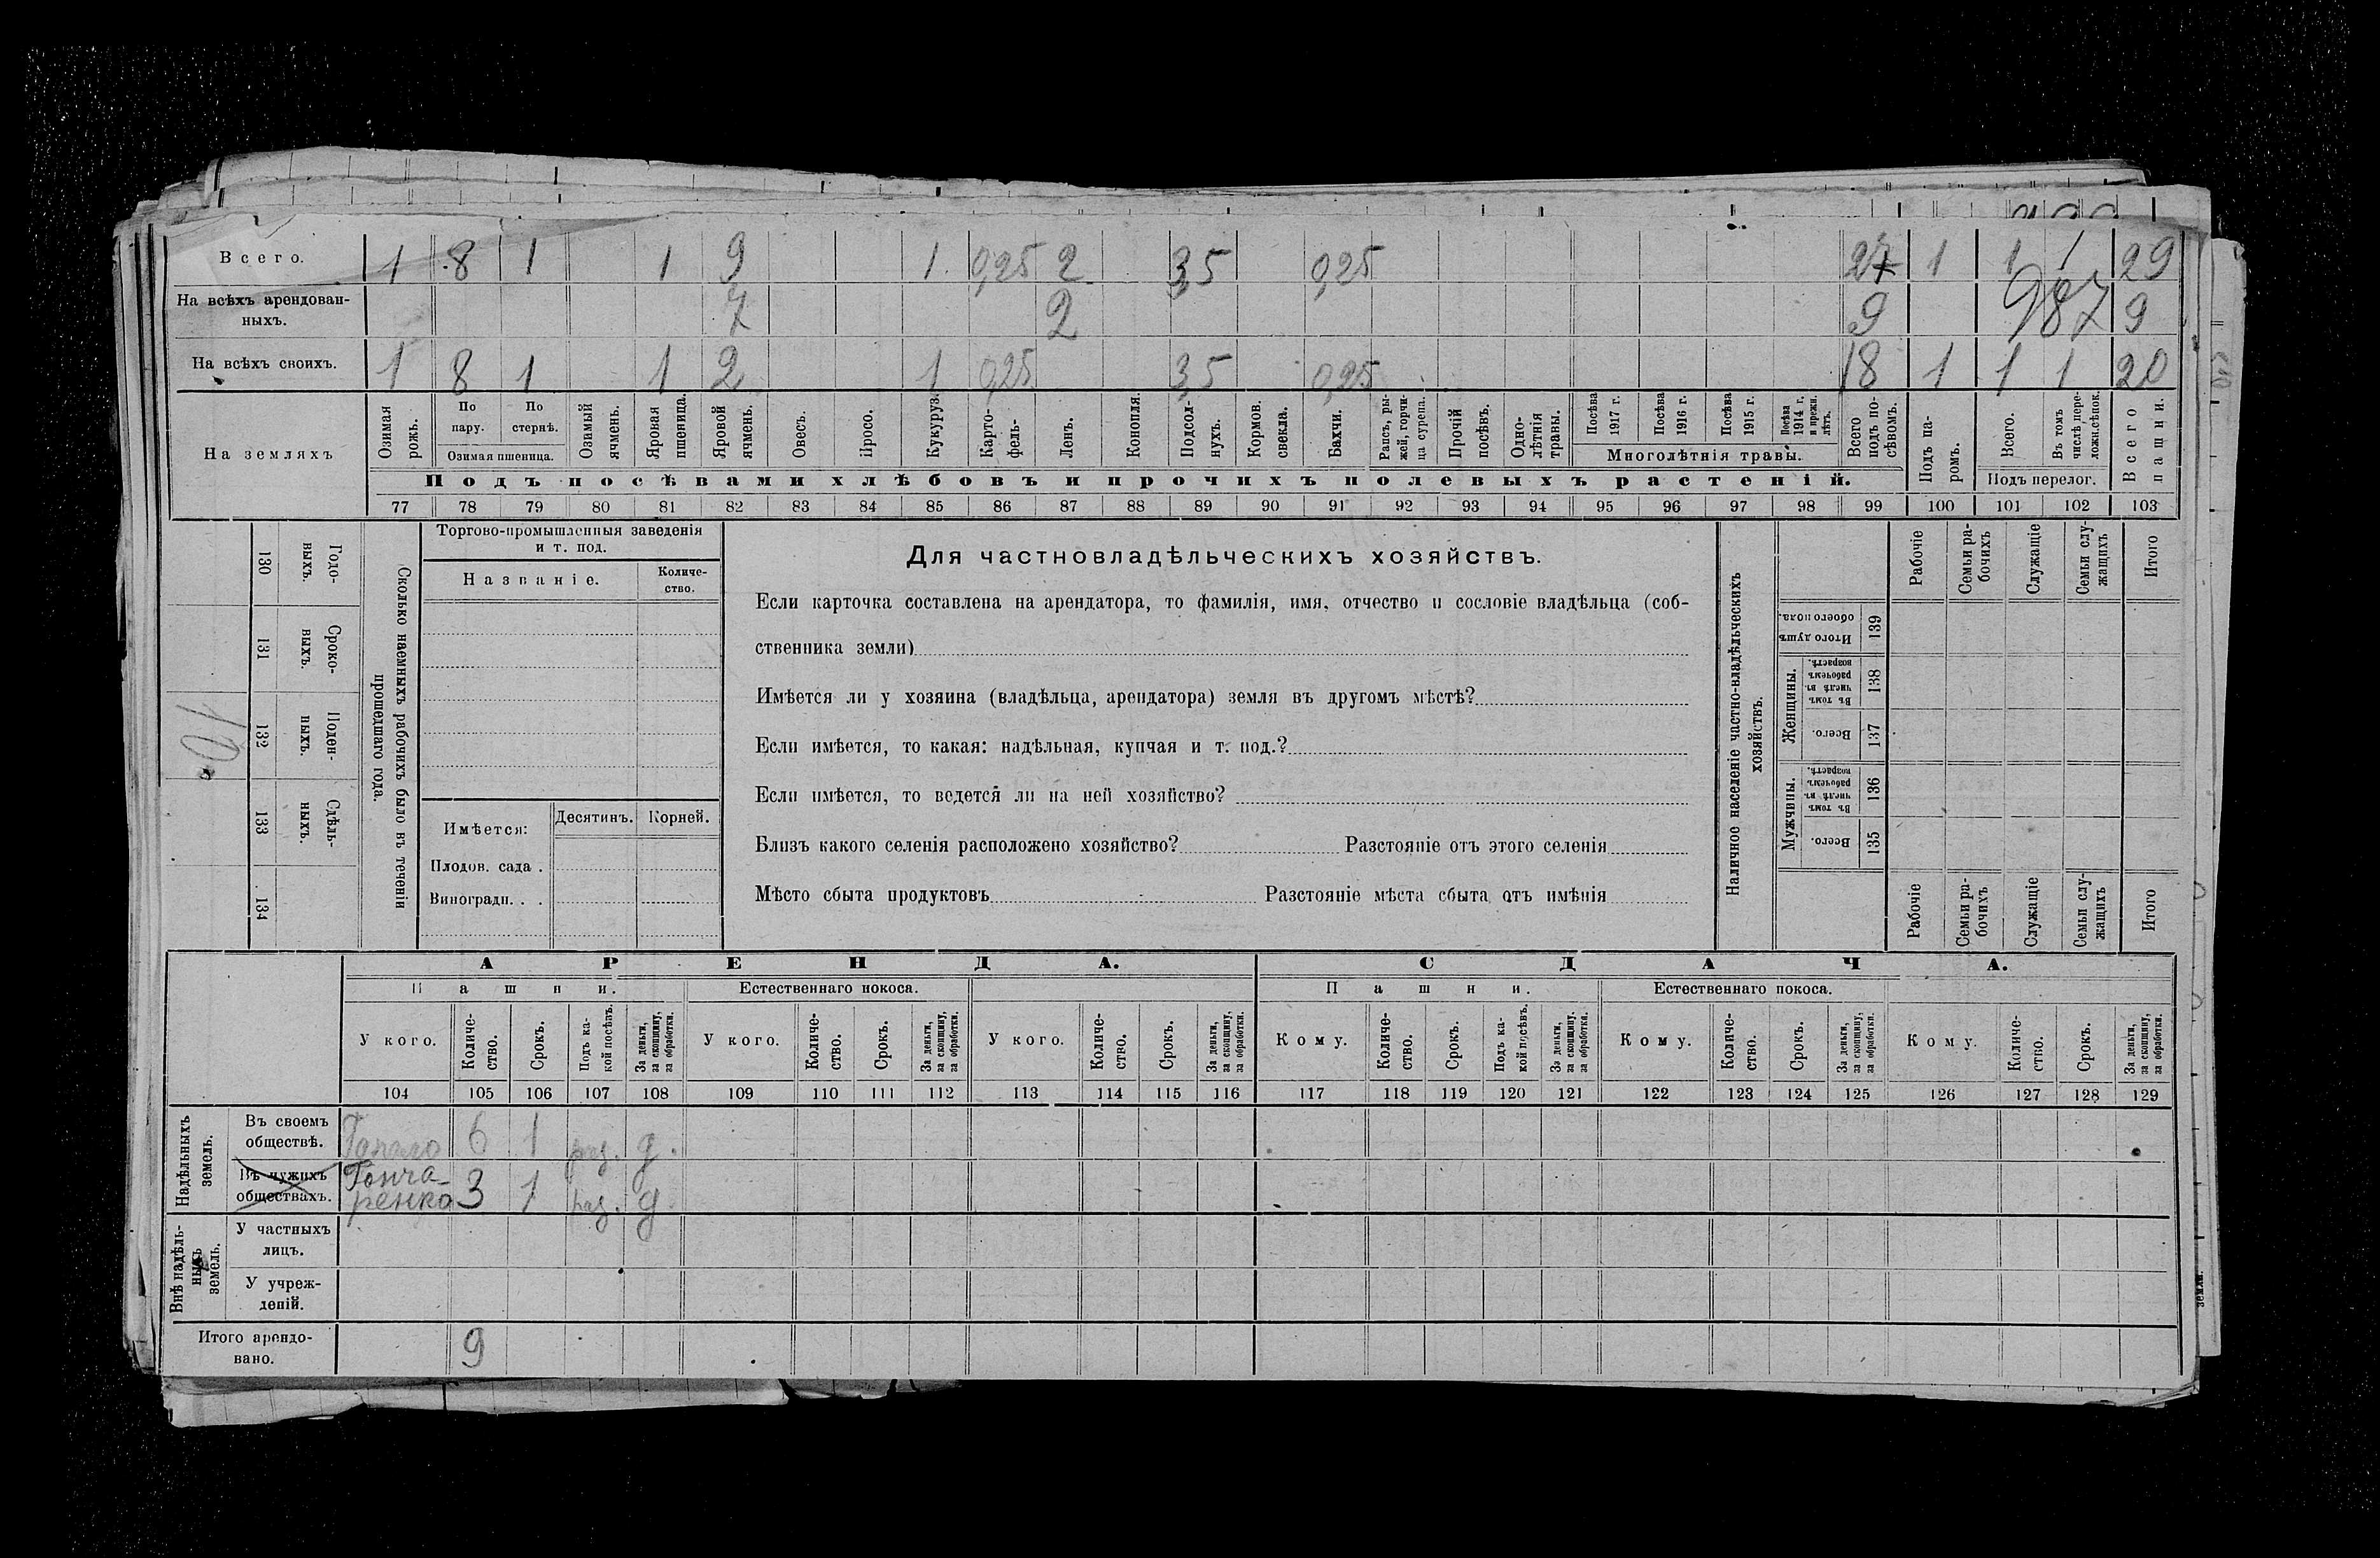 Всего. 1 8 1 1 9 1 0,25 2 3,5 0,25 27 1 1 1 29
На всѣхъ арендован-
ныхъ. 7 2 9 987 9
На всѣхъ своихъ. 1 8 1 1 2 1 0,25 3,5 0,25 18 1 1 1 20
На земляхъ
Озимая рожь.
По пару.
По стернѣ.
Озимая пшеница.
Озимый ячмень.
Яровая пшеница.
Яровой ячмень.
Овесъ.
Просо.
Кукуруз.
Карто-
фель-
Ленъ.
Конопля.
Подсол-
нухъ.
Кормов. свекла.
Бахчи.
Рапсъ, ры-
жей, горчи-
ца сурепа.
Прочій посѣвъ.
Одно-
лѣтнія травы.
Посѣва 1917 г.
Посѣва 1916 г.
Посѣва 1915 г.
Посѣва 1914 г. и прежн. лѣтъ.
Многолѣтнія травы.
Всего подъ по-
сѣвомъ.
Подъ па-
ромъ.
Всего.
Въ томъ числѣ пере-
ложн.сѣпок.
Подъ перелог.
Всего пашни.
Подъ посѣвами хлѣбовъ и прочихъ полевыхъ растеній.
77 78 79 80 81 82 83 84 85 86 87 88 89 90 91 92 93 94 95 96 97 98 99 100 101 102 103
10
130 131 132 133 134
Годо-
выхъ.
Сроко-
выхъ.
Поден-
ныхъ.
Сдѣль-
ныхъ.
Сколько наемныхъ рабочихъ было въ теченіи
прошедшаго года.
Торгово-промышленныя заведенія
и т. под.
Названіе.
Количе-
ство.
Имѣется:
Десятинъ. Корней.
Плодов. сада .
Виноградн. . .
Для частновладѣльческихъ хозяйствъ.
Если карточка составлена на арендатора, то фамилія, имя, отчество и сословіе владѣльца (соб-
ственника земли)
Имѣется ли у хозяина (владѣльца, арендатора) земля въ другомъ мѣстѣ?
Если имѣется, то какая: надѣльная, купчая и т. под.?
Если имѣется, то ведется ли на ней хозяйство?
Близъ какого селенія расположено хозяйство? Разстояніе отъ этого селенія
Мѣсто сбыта продуктовъ Разстояніе мѣста сбыта отъ имѣнія
Наличное населеніе частно-владѣльческихъ
хозяйствъ.
Рабочіе
Семьи ра-
бочихъ
Служащіе
Семьи слу-
жащихъ
Итого
Итого душъ обоего пола. 139
Женщины.
Въ томъ числѣ въ рабочемъ возрастѣ. 138
Всего. 137
Мужчины.
Въ томъ числѣ въ рабочемъ возрастѣ. 136
Всего. 135
Рабочіе
Семьи ра-
бочихъ
Служащіе
Семьи слу-
жащихъ
Итого
АРЕНДА. СДАЧА.
Пашни. Естественнаго покоса. Пашни. Естественнаго покоса.
У кого. Количе-
ство. Срокъ. Подъ ка-
кой посѣвъ. За деньги,
за скопщину,
за обработки.
У кого. Количе-
ство. Срокъ. За деньги,
за скопщину,
за обработки.
У кого. Количе-
ство. Срокъ. За деньги,
за скопщину,
за обработки.
Кому. Количе-
ство. Срокъ. Подъ ка-
кой посѣвъ. За деньги,
за скопщину,
за обработки.
Кому. Количе-
ство. Срокъ. За деньги,
за скопщину,
за обработки.
Кому. Количе-
ство. Срокъ. За деньги,
за скопщину,
за обработки.
104 105 106 107 108 109 110 111 112 113 114 115 116 117 118 119 120 121 122 123 124 125 126 127 128 129
Надѣльныхъ
земель.
Въ своемъ
обществѣ. 6 1 раз. д.
Въ чужихъ
обществахъ. Гонча-
ренко 3 1 раз. д.
Внѣ надѣль-
ныхъ
земель.
У частныхъ
лицъ.
У учреж-
деній.
Итого арендо-
вано. 9
земли.